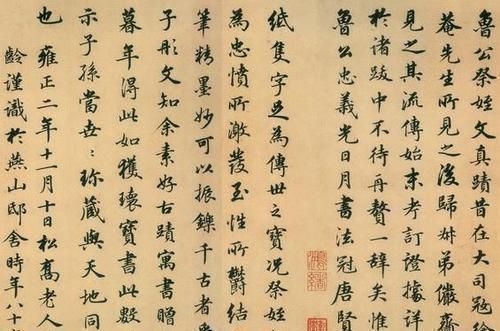 魯公祭姪文真蹟昔在大司寇
菴先生所見之後歸娣弟儼齋
見之其流傳始末考訂證據詳
於諸跋中不待再贅一辭矣惟
魯公忠義光日月書法冠唐賢
紙隻字足為傳世之寶況祭姪
為忠憤所激發至性所鬱結
筆精墨妙可以振鑠千古者
子彤文知余素好古蹟寓書贈
暮年得此如獲瓌寶書此數
示子孫當世〻珍藏與天地同
也 雍正二年十一月十日松喬老人
齡謹識於燕山邸舍時年八十